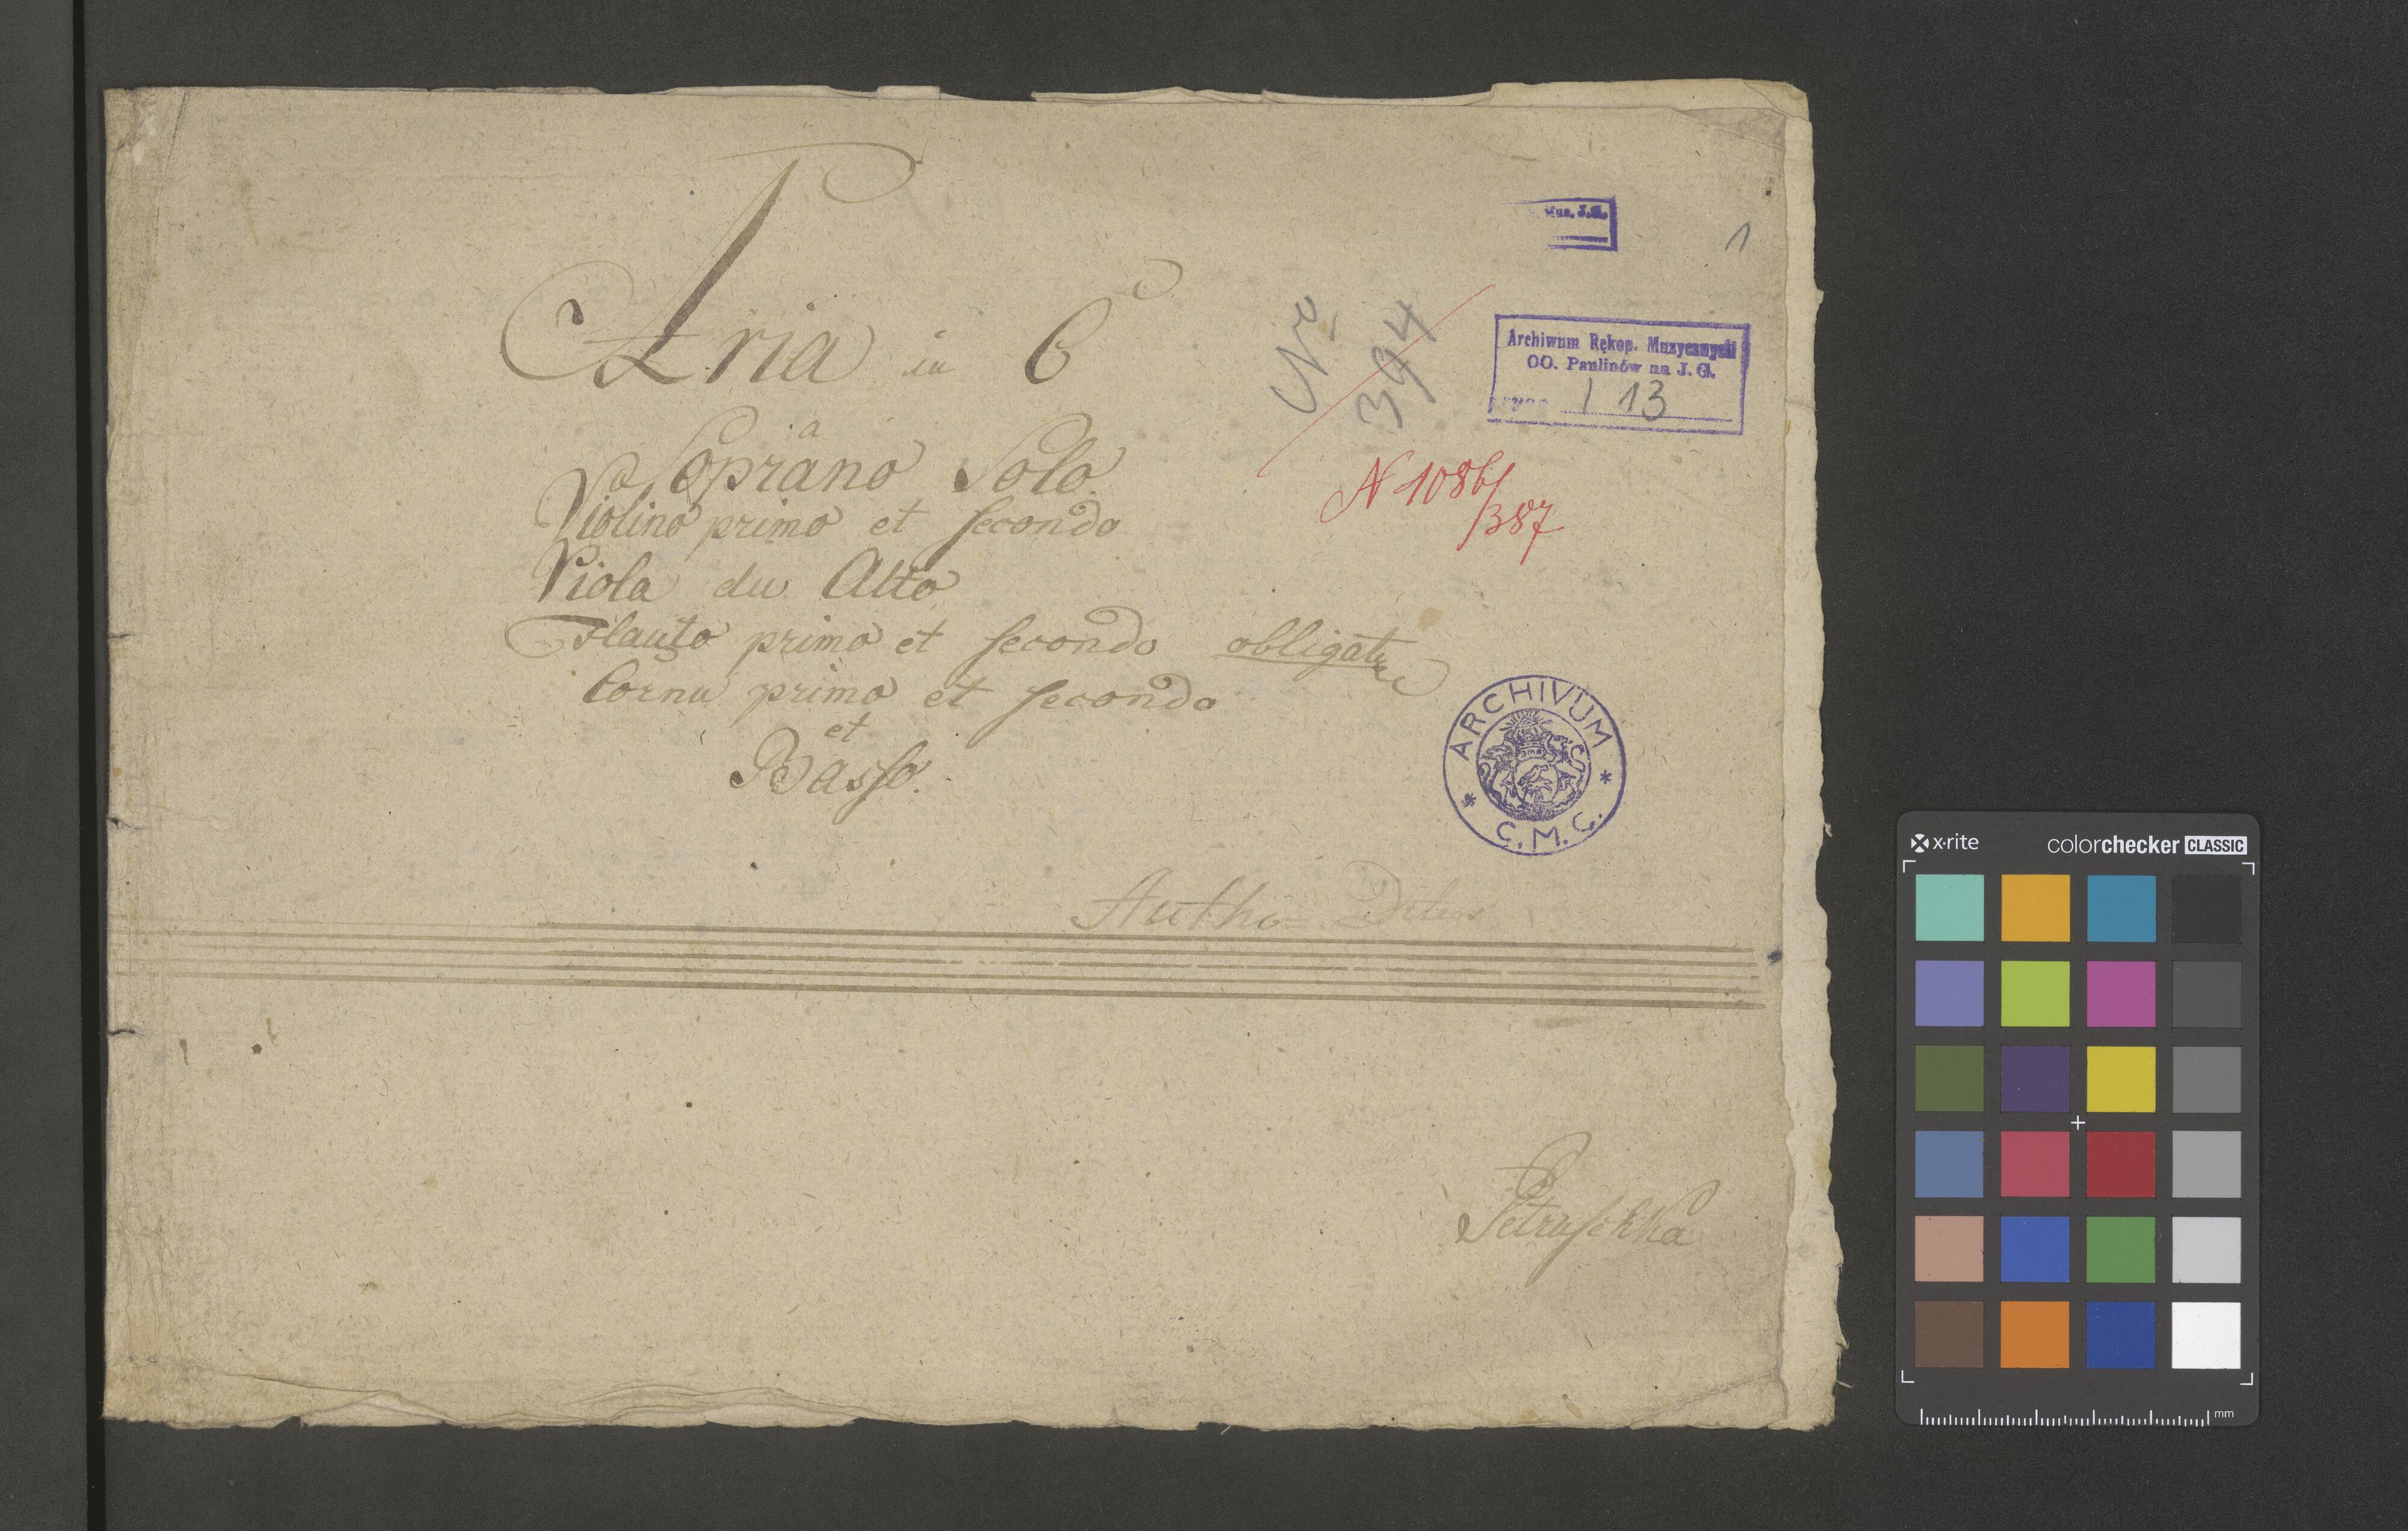 Aria in C
a
Soprano Solo.
Violino primo et secondo
Viola du Alto
Flauto primo et secondo obligate
Cornu primo et secondo
et
Basso.
Autho=
Petruschka
1
Nro
394
N 1086/
/387
Mus. J.G.
Archiwum Rękop. Muzycznych
OO. Paulinów na J. G.
I 13
ARCHIVUM
* C.M.C. *
x-rite
colorchecker CLASSIC
mm